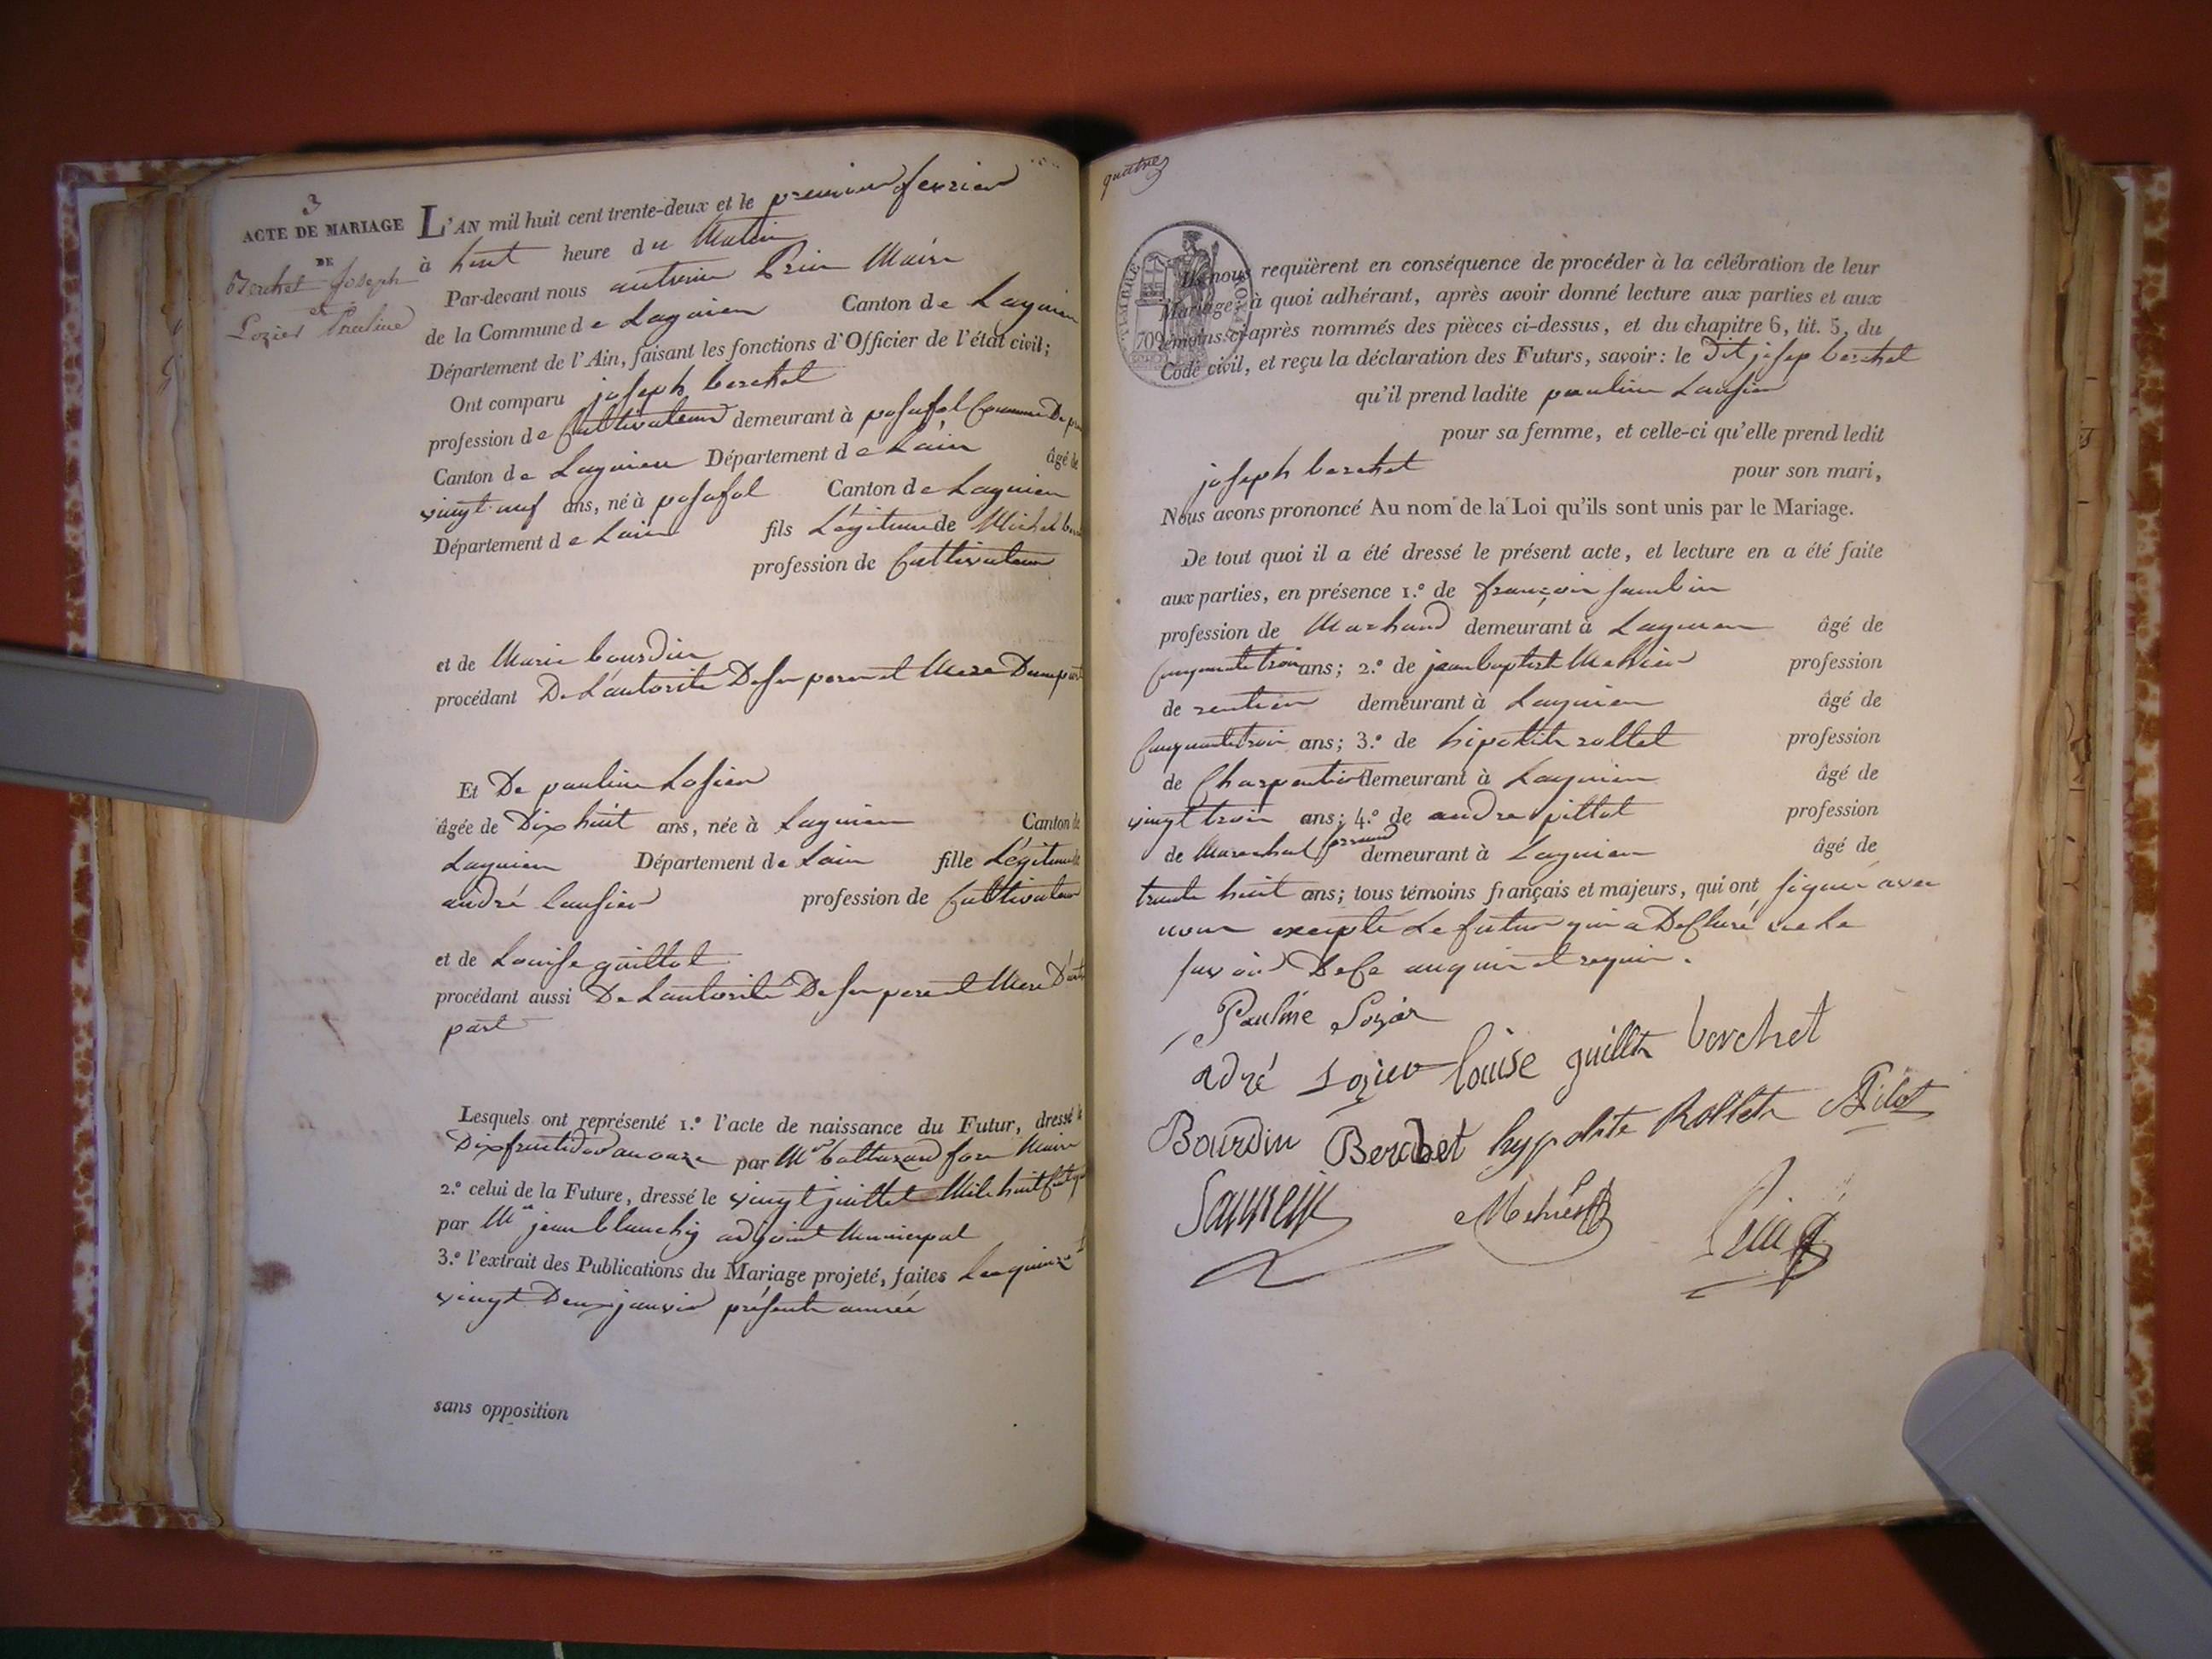 3
ACTE DE MARIAGE
DE
Berchet Joseph
et
Lozier Pauline
L'AN mil huit cent trente-deux et le premier fevrier
à huit heure du Matin
Par-devant nous Maire
de la Commune de Lagnieu Canton de Lagnieu
Département de l'Ain, faisant les fonctions d'Officier de l'état civil;
Ont comparu joseph berchet
profession de Cultivateur demeurant à posafol Commune De
Canton de Lagnieu Département de Lain âgé de
vingt neuf ans, né à posafol Canton de Lagnieu
Département de Lain fils Légitime de Michel
profession de Cultivateur
et de Marie bourdin
procédant De Lautorité De son pere et Mere Dune part
Et De pauline Losier
âgée de Dix huit ans, née à Lagnieu Canton de
Lagnieu Département de Lain fille Légitime de
andré Lausier profession de Cultivateur
et de Louise guillot
procédant aussi De Lautorité De son pere et Mere D'autre
part
Lesquels ont représenté 1.º l'acte de naissance du Futur, dressé le
Dix fructidor an onze par Mr baltazard Maire
2.º celui de la Future, dressé le vingt juillet Mile huit Cent
par Mr jean blanchy adjoint Municipal
3.º l'extrait des Publications du Mariage projeté, faites Les quinze
vingt Deux janvier présente année
sans opposition
quatre
TIMBRE ROYAL
709
Ils nous requièrent en conséquence de procéder à la célébration de leur
Mariage; à quoi adhérant, après avoir donné lecture aux parties et aux
témoins ci-après nommés des pièces ci-dessus, et du chapitre 6, tit. 5, du
Code civil, et reçu la déclaration des Futurs, savoir: le Dit josep berchet
qu'il prend ladite pauline Lausier
pour sa femme, et celle-ci qu'elle prend ledit
joseph berchet pour son mari,
Nous avons prononcé Au nom de la Loi qu'ils sont unis par le Mariage.
De tout quoi il a été dressé le présent acte, et lecture en a été faite
aux parties, en présence 1.º de françois
profession de Marchand demeurant à Lagnieu âgé de
Cinquante trois ans; 2.º de jean baptiste profession
de rentier demeurant à Lagnieu âgé de
Cinquante trois ans; 3.º de hipolite rollet profession
de Charpentier demeurant à Lagnieu âgé de
vingt trois ans; 4.º de andre pillot profession
de Marechal demeurant à Lagnieu âgé de
trente huit ans; tous témoins français et majeurs, qui ont signé avec
nous excepté Le futur qui a Declaré ne Le
savoir De Ce enquis et requis.
Pauline Lozier
adré Lozier louise guillot berchet
Bourdin Berchet hypolite Rollet Pilot